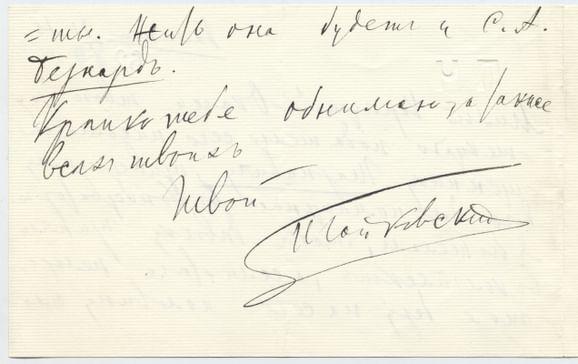 =ты. Жить она будетъ и С. А.
Бернардъ.
Крѣпко тебе обнимаю, также
всехъ твоихъ
Твой
П Чайковскій